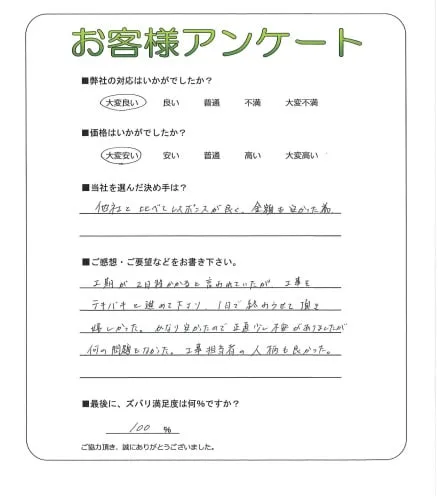 お客様アンケート
■弊社の対応はいかがでしたか？
大変良い 良い 普通 不満 大変不満
■価格はいかがでしたか？
大変安い 安い 普通 高い 大変高い
■当社を選んだ決め手は？
他社と比べてレスポンスが良く、金額も良かった為
■ご感想・ご要望などをお書き下さい。
工期が2日程かかると言われていたが、工事を
テキパキと進めて下さり、1日で終わらせて頂き
嬉しかった。かなり安かったので正直少し不安がありましたが
何の問題もなかった。工事担当者の人柄も良かった。
■最後に、ズバリ満足度は何％ですか？
100 ％
ご協力頂き、誠にありがとうございました。